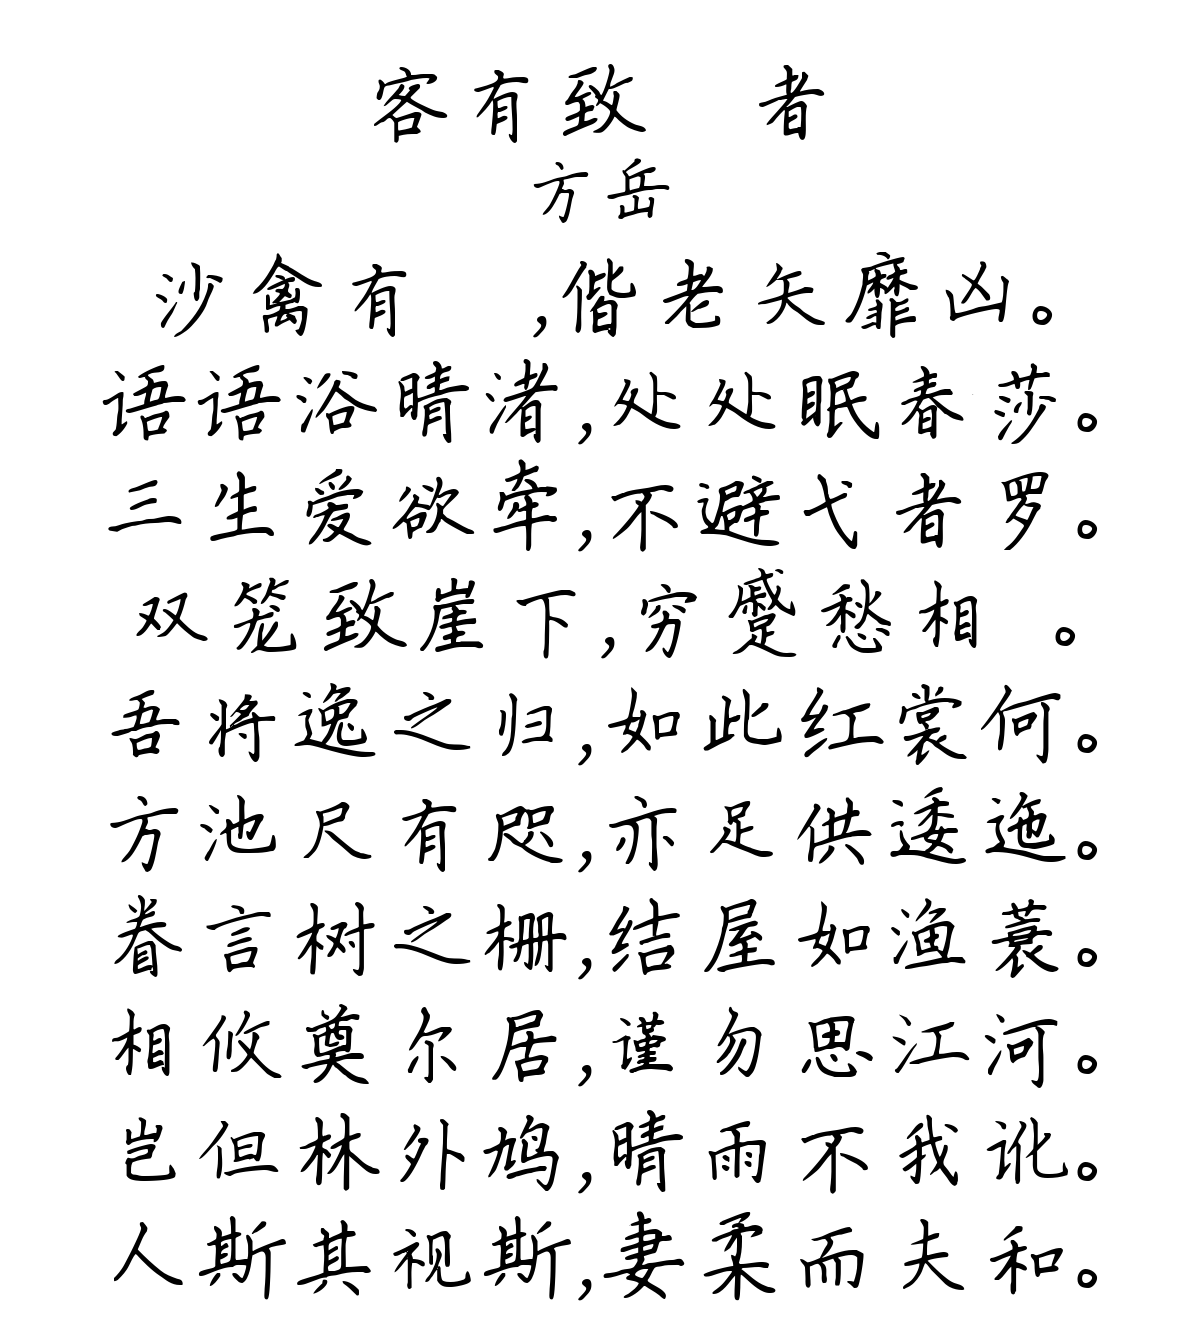 客有致 者
方岳
沙禽有 ,偕老矢靡凶。
语语浴晴渚,处处眠春莎。
三生爱欲牵,不避弋者罗。
双笼致崖下,穷蹙愁相 。
吾将逸之归,如此红裳何。
方池尺有咫,亦足供逶迤。
眷言树之栅,结屋如渔蓑。
相攸奠尔居,谨勿思江河。
岂但林外鸠,晴雨不我讹。
人斯其视斯,妻柔而夫和。